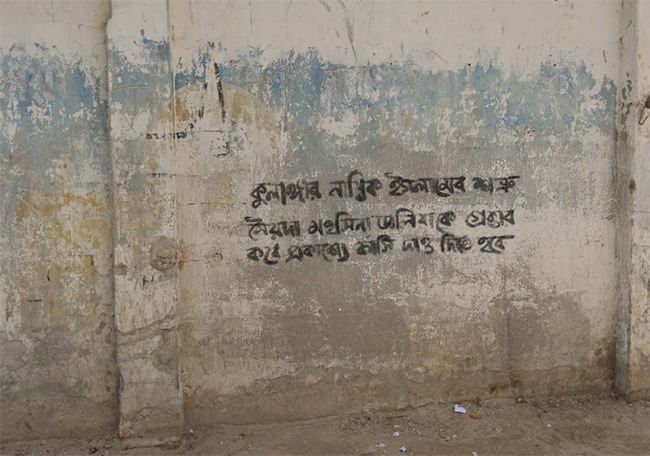 কুলাঙ্গার নাস্তিক ইসলামের শত্রু
সৈয়দা মহসিনা ডেলিশাকে গ্রেপ্তার
করে প্রকাশ্যে ফাসি দাও দিতে হবে